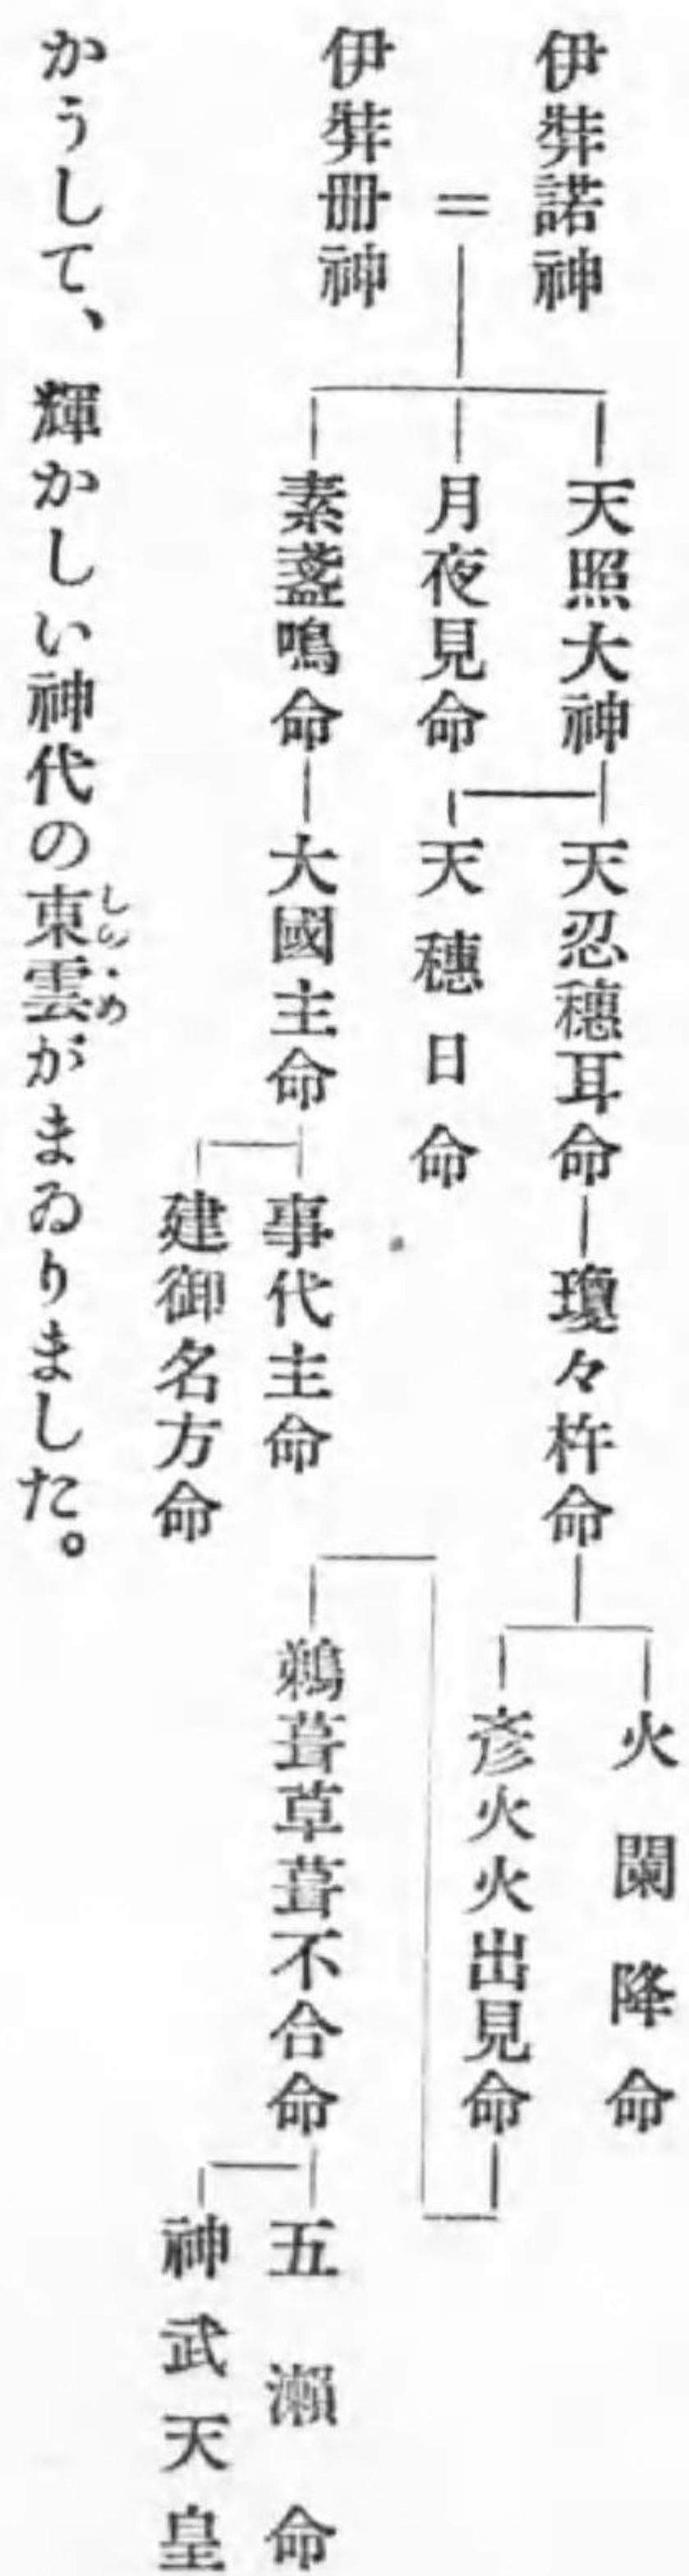 伊弉諾神
伊弉冊神
天照大神
月夜見命
素盞鳴命
天忍穗耳命
天穗日命
大國主命
事代主命
建御名方命
瓊々杵命
火闌降命
彦火火出見命
鵜葺草葺不合命
五瀬命
神武天皇
かうして、輝かしい神代の東雲がまゐりました。